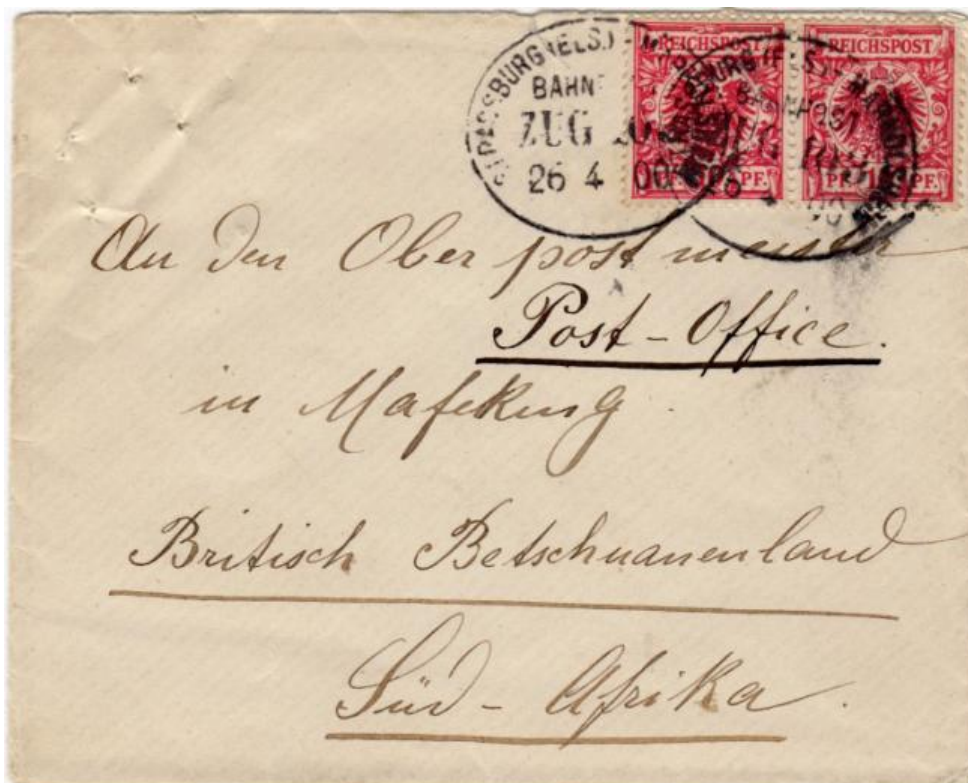 STRASSBURG (ELS.)
BAHN
ZUG
26 4 00
REICHSPOST
PF. PF.
REICHSPOST
PF. PF.
BURG (ELS.)
BAHNPOST
ZUG
An den Oberpostmeister
Post-Office.
in Mafeking.
Britisch Betschuanenland
Süd-Afrika.